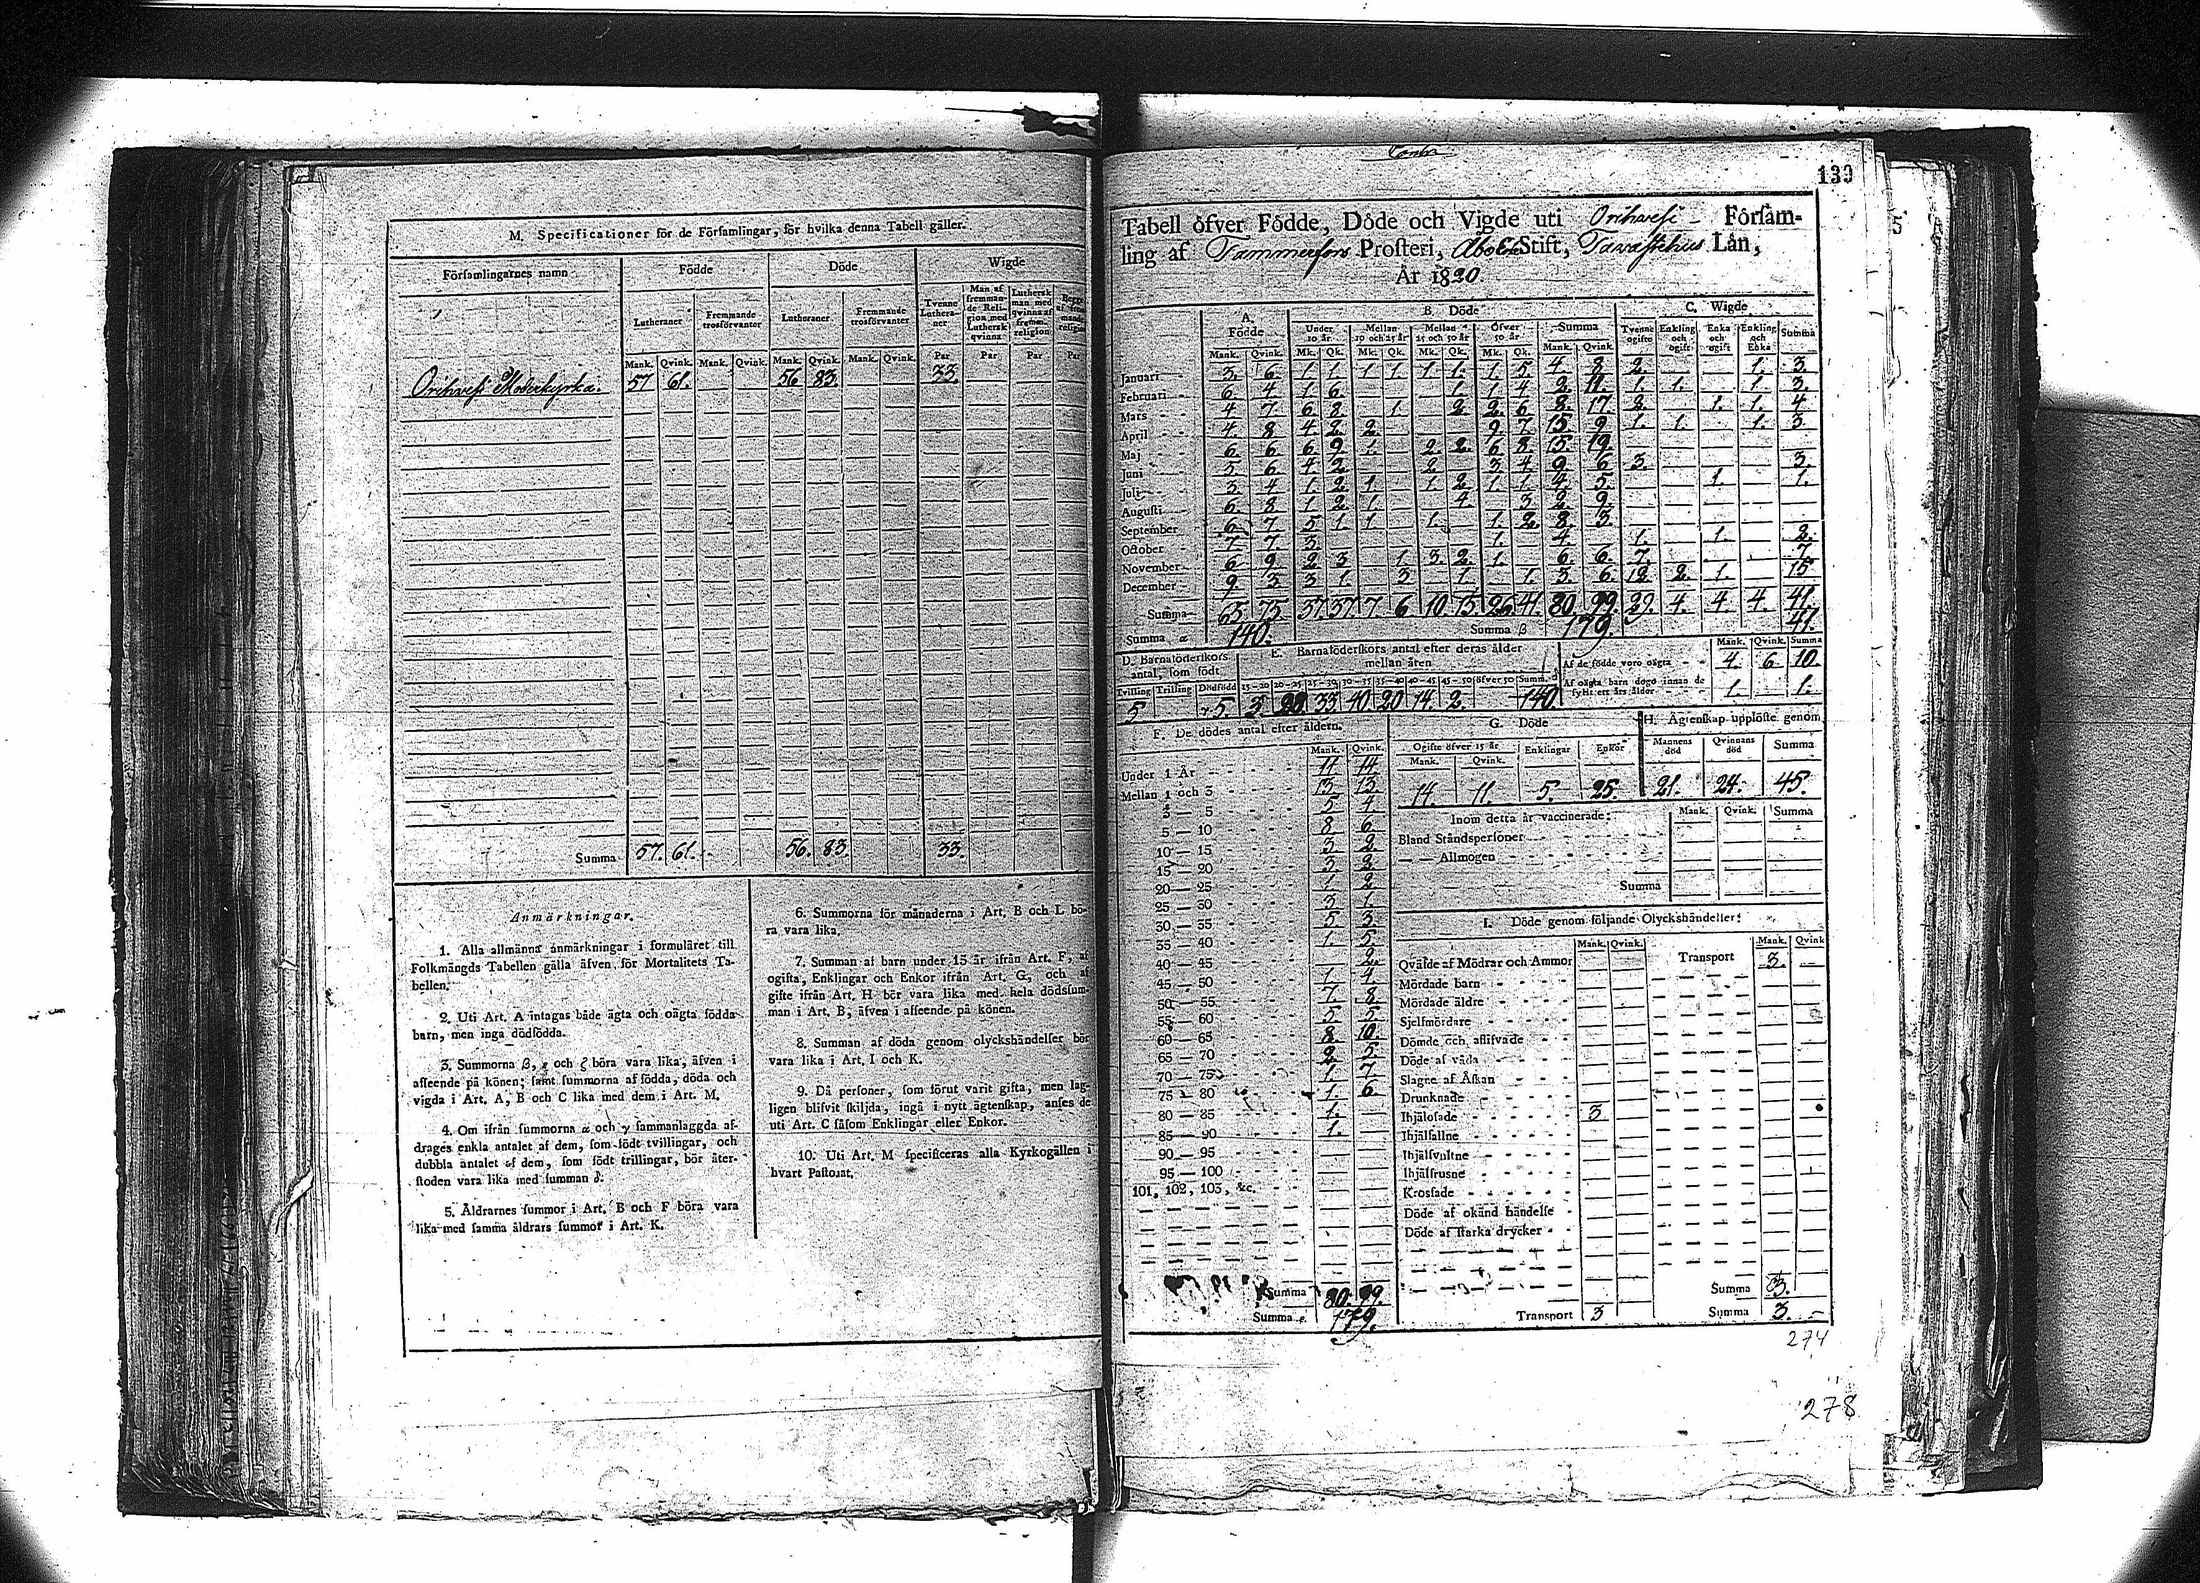 M. Specificationer för de Församlingar, för hvilka denna Tabell gäller.
Församlingarnes namn
Födde
Döde
Wigde
Lutheraner
Fremmande trosförvanter
Lutheraner
Fremmande trosförvanter
Tvenne Lutheraner
Man af fremmande Religion med Luthersk qvinna
Luthersk man med qvinna af fremm. religion
Mank. Qvink. Mank. Qvink. Mank. Qvink. Mank. Qvink. Par Par Par Par
Orihvesi Moderkyrka. 57 61. 56 83. 33.
Summa 57. 61. 56. 83. 33.
Anmärkningar.
1. Alla allmänna anmärkningar i formuläret till
Folkmängds Tabellen gälla äfven för Mortalitets Ta-
bellen.
2. Uti Art. A intagas både ägta och oägta födda
barn, men inga dödfödda.
3. Summorna β, ε och ζ böra vara lika, äfven i
afseende på könen; samt summorna af födda, döda och
vigda i Art. A, B och C lika med dem i Art. M.
4. Om ifrån summorna α och γ sammanlaggda af-
drages enkla antalet af dem, som födt tvillingar, och
dubbla antalet af dem, som födt trillingar, bör åter-
stoden vara lika med summan δ.
5. Åldrarnes summor i Art. B och F böra vara
lika med samma åldrars summor i Art. K.
6. Summorna för månaderna i Art. B och L bö-
ra vara lika.
7. Summan af barn under 15 år ifrån Art. F, af
ogifta, Enklingar och Enkor ifrån Art. G, och af
gifte ifrån Art. H bör vara lika med hela dödsum-
man i Art. B, äfven i afseende på könen.
8. Summan af döda genom olyckshändelser bör
vara lika i Art. I och K.
9. Då personer, som förut varit gifta, men lag-
ligen blifvit skiljda, ingå i nytt ägtenskap, anses de
uti Art. C såsom Enklingar eller Enkor.
10. Uti Art. M specificeras alla Kyrkogällen i
hvart Pastorat.
139
Tabell öfver Födde, Döde och Vigde uti Orihvesi Försam-
ling af Tammerfors Prosteri, Åbo Stift, Tavastehus Län,
År 1820.
A. Födde
B. Döde
C. Wigde
Under 10 år
Mellan 10 och 25 år
Mellan 25 och 50 år
Öfver 50 år
Summa
Tvenne ogifte
Enkling och ogift
Enka och ogift
Enkling och Enka
Summa
Mank. Qvink. Mk. Qk. Mk. Qk. Mk. Qk. Mk. Qk. Mank. Qvink.
Januari 3. 6. 1. 1. 1. 1. 1. 1. 1. 5. 4. 8. 2. 1. 3.
Februari 6. 4. 1. 6. 1. 1. 4. 2. 11. 1. 1. 1. 3.
Mars 4. 7. 6. 8. 1. 2. 2. 6. 8. 17. 2. 1. 1. 4.
April 4. 8. 4. 2. 2. 9. 7. 15. 9. 1. 1. 1. 3.
Maj 6. 6. 6. 9. 1. 2. 2. 6. 8. 15. 19.
Juni 5. 6. 4. 2. 2. 3. 4. 9. 6. 3. 3.
Juli 3. 4. 1. 2. 1. 1. 2. 1. 1. 4. 5. 1. 1.
Augusti 6. 8. 1. 2. 1. 4. 3. 2. 9.
September 6. 7. 5. 1. 1. 1. 1. 2. 8. 3.
October 7. 7. 3. 1. 4. 1. 1. 2.
November 6. 9. 2. 3. 1. 3. 2. 1. 6. 6. 7. 7.
December 9. 3. 3. 1. 3. 1. 1. 3. 6. 12. 2. 1. 15.
Summa 65. 75. 37. 37. 7. 6. 10. 15. 26. 41. 80. 99. 29. 4. 4. 4. 41.
Summa α 140. Summa β 179. 41.
D. Barnaföderskors antal, som födt
Tvilling Trilling Dödfödd
5 5.
E. Barnaföderskors antal efter deras ålder mellan åren
15—20 20—25 25—30 30—35 35—40 40—45 45—50 öfver 50 Summ. δ
3. 28. 33. 40. 20. 14. 2. 140.
Mank. Qvink. Summa
Af de födde voro oägta 4. 6. 10.
Af oägta barn dogo innan de
fyllt ett års ålder 1. 1.
F. De dödes antal efter åldern.
Mank. Qvink.
Under 1 År 11. 14.
Mellan 1 och 3 13. 13.
3 — 5 5 4
5 — 10 8 6.
10 — 15 3 2.
15 — 20 3 2.
20 — 25 1. 2.
25 — 30 3 1.
30 — 35 5 3.
35 — 40 1. 5.
40 — 45 2.
45 — 50 1. 4.
50 — 55 7. 8.
55 — 60 5. 5.
60 — 65 8. 10.
65 — 70 2. 5.
70 — 75 1. 7.
75 — 80 1. 6.
80 — 85 1.
85 — 90 1.
90 — 95
95 — 100
101, 102, 103, &c.
Summa 80. 99.
Summa ε. 179.
G. Döde
Ogifte öfver 15 år Enklingar Enkor
Mank. Qvink.
14. 11. 5. 25.
H. Ägtenskap upplöste genom
Mannens död Qvinnans död Summa
21. 24. 45.
Inom detta år vaccinerade:
Mank. Qvink. Summa
Bland Ståndspersoner
— — Allmogen
Summa
I. Döde genom följande Olyckshändelser:
Mank. Qvink. Mank. Qvink
Qväfde af Mödrar och Ammor Transport 3.
Mördade barn
Mördade äldre
Sjelfmördare
Dömde och aflifvade
Döde af våda
Slagne af Åskan
Drunknade 3
Ihjälosade
Ihjälfallne
Ihjälsvultne
Ihjälfrusne
Krossade
Döde af okänd händelse
Döde af starka drycker
Summa 3.
Transport 3 Summa 3.
274
278